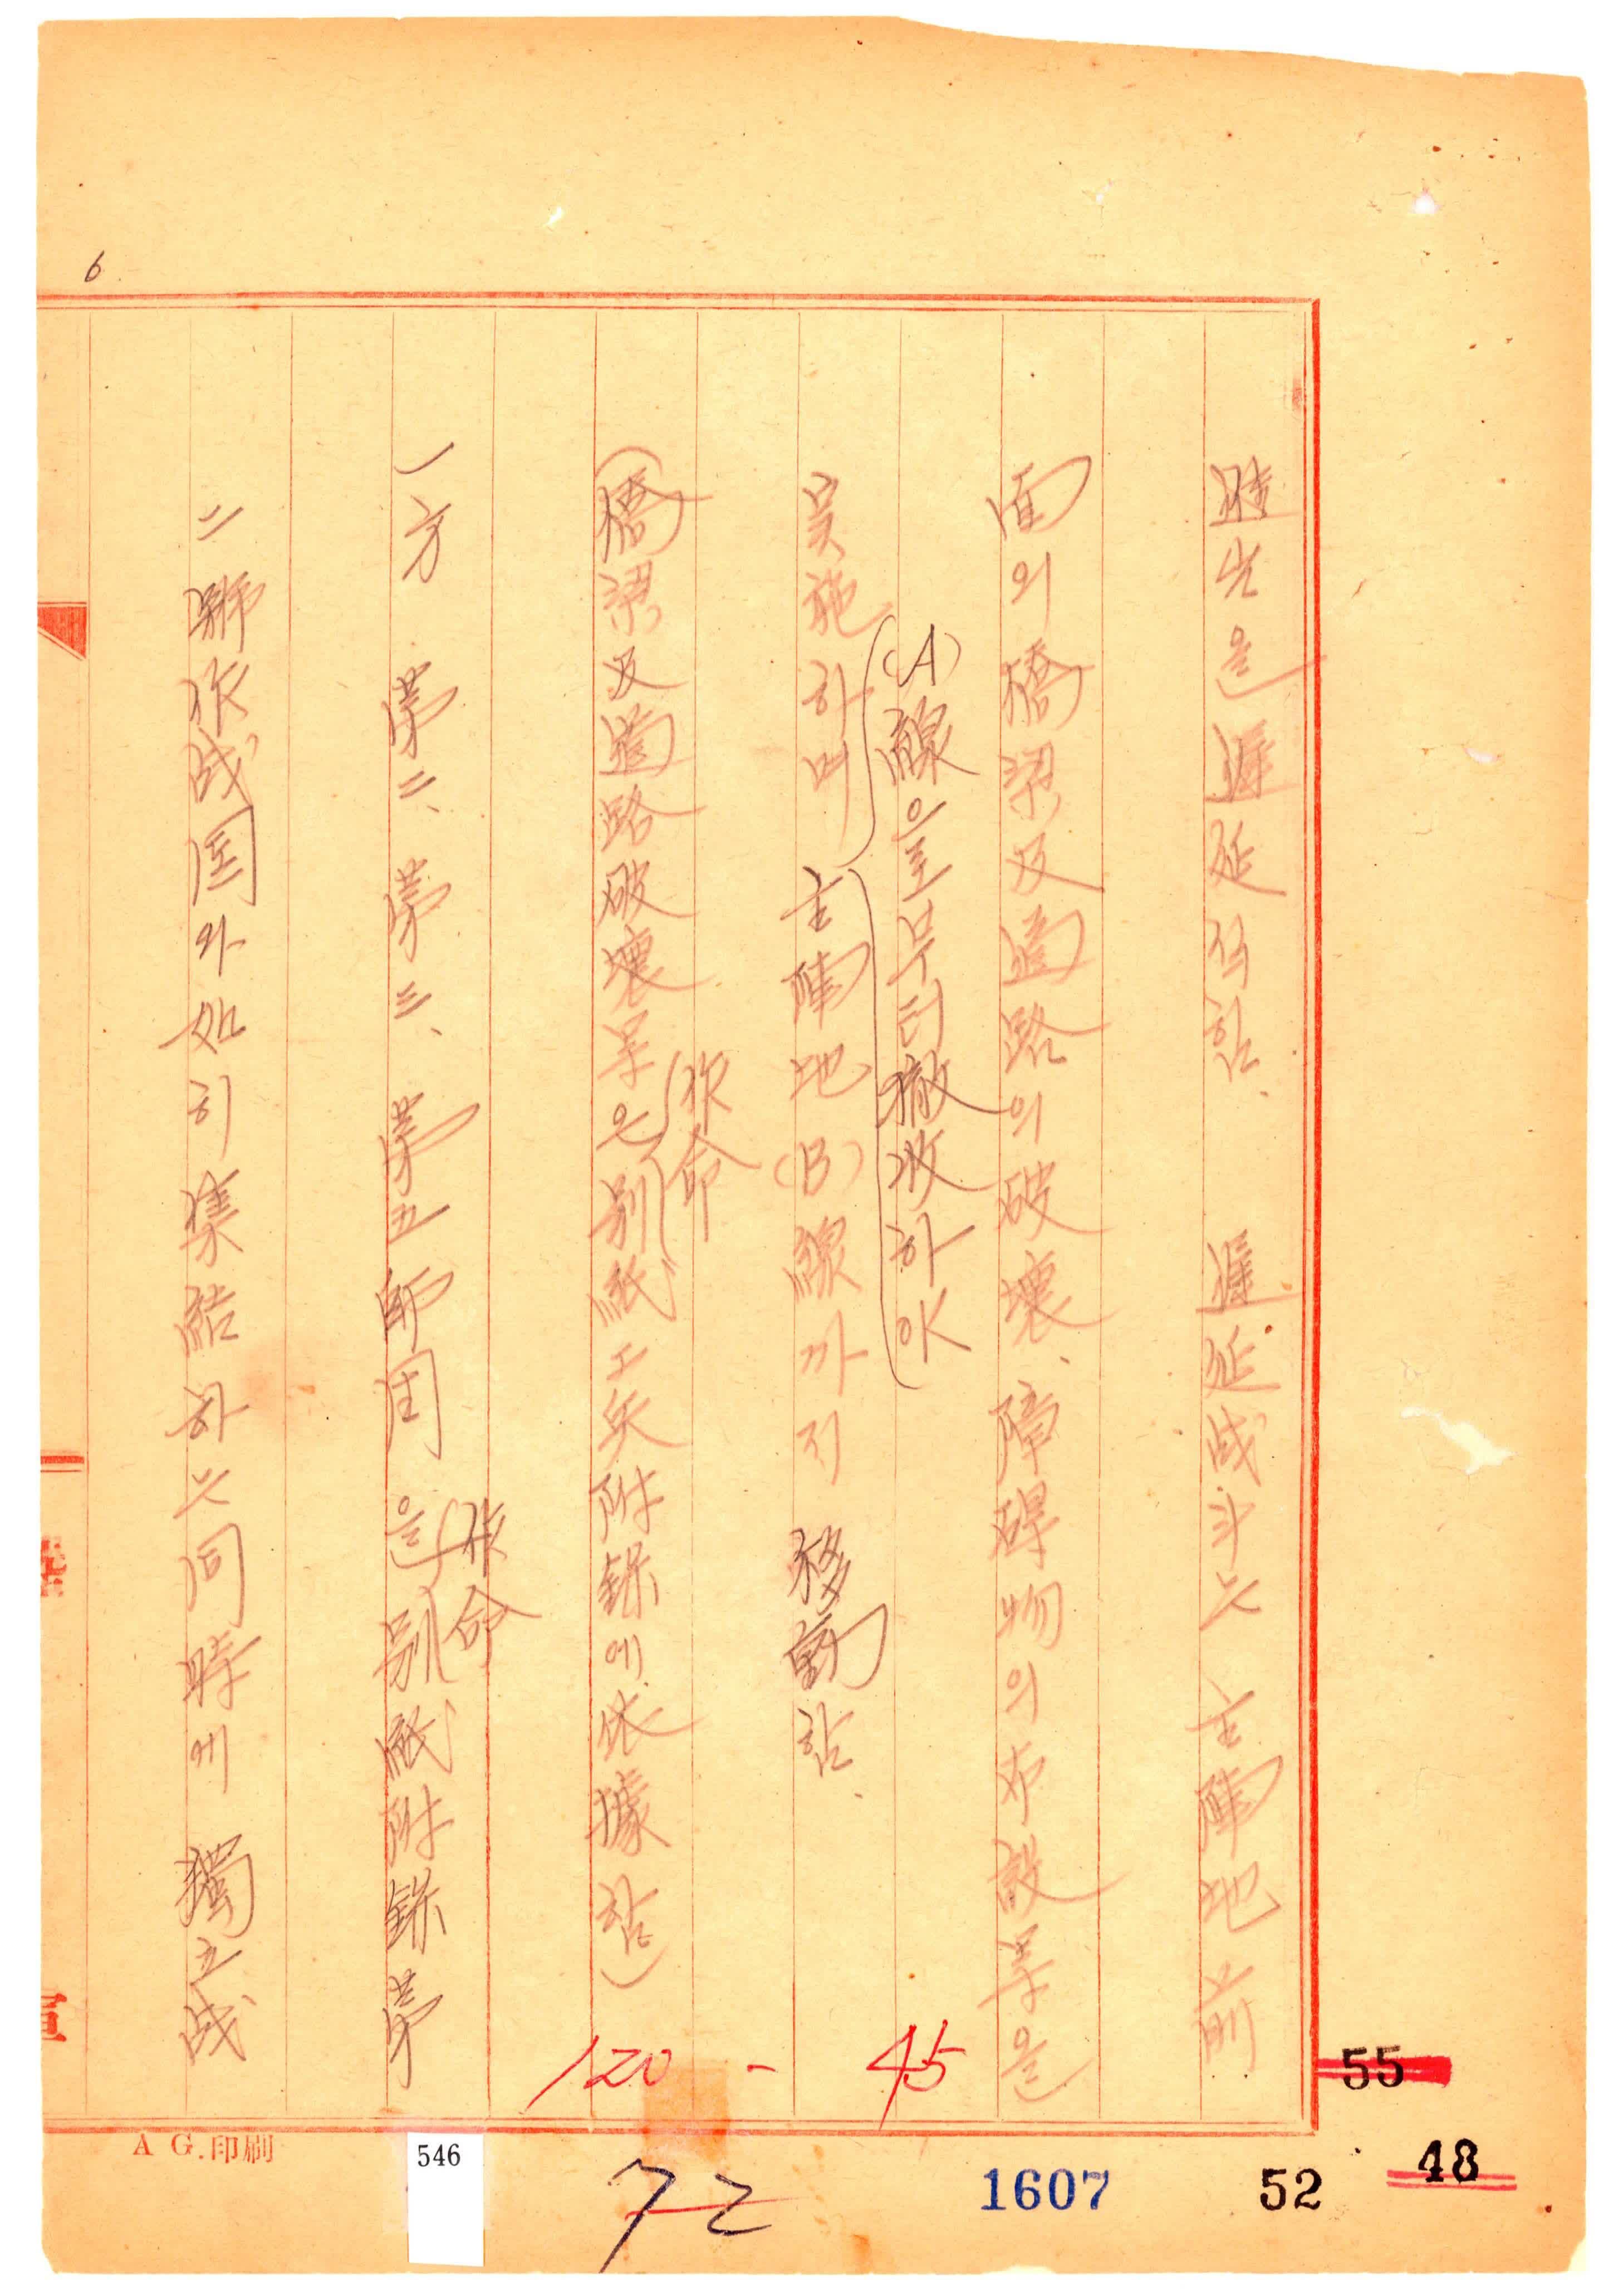 6
時間을 遲延식힘. 遲延战斗는 主陣地前
面의 橋梁及道路의 破壞、障碍物의 布設等을
(A)線으로부터 撤收하야
実施하며 主陣地(B)線까지 移動함.
(橋梁及道路破壞等은 別紙工兵附錄에依據함)
作命
一方 第二、第三、第五師団은 別紙附錄第
作命
二號作战国와 如히 集結하는 同時에 獨立战
120 - 45
55
48
52
1607
72
546
A G.印刷